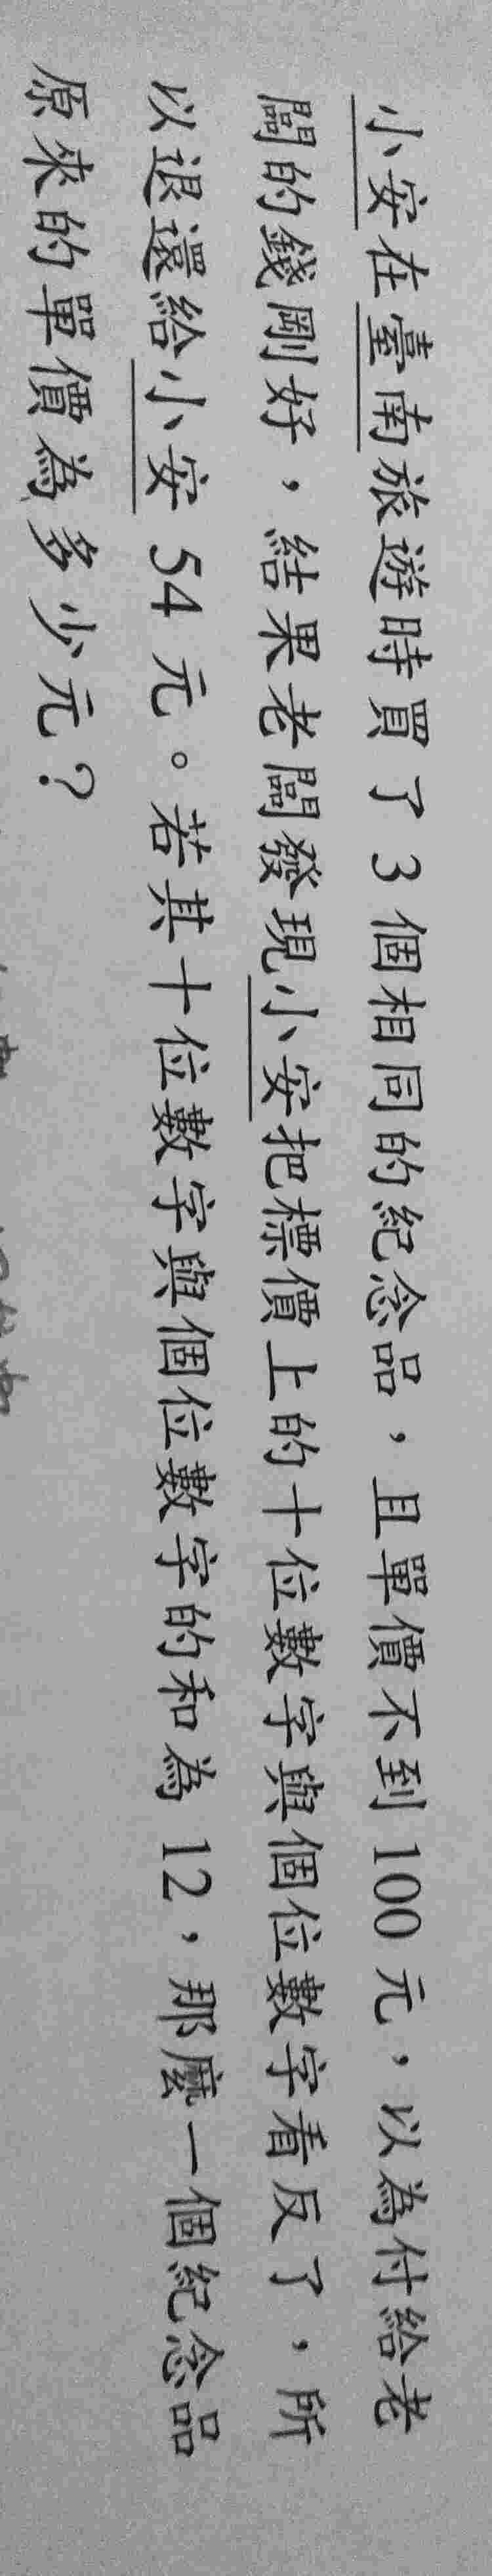 小安在臺南旅遊時買了3個相同的紀念品，且單價不到100元，以為付給老
闆的錢剛好，結果老闆發現小安把標價上的十位數字與個位數字看反了，所
以退還給小安54元。若其十位數字與個位數字的和為12，那麼一個紀念品
原來的單價為多少元？